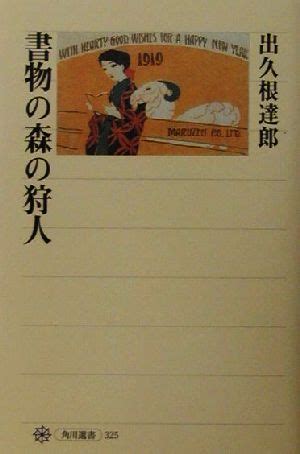 出久根達郎
WITH HEARTY GOOD WISHES FOR A HAPPY NEW YEAR
1919
MARUZEN CO. LTD.
書物の森の狩人
角川選書 325